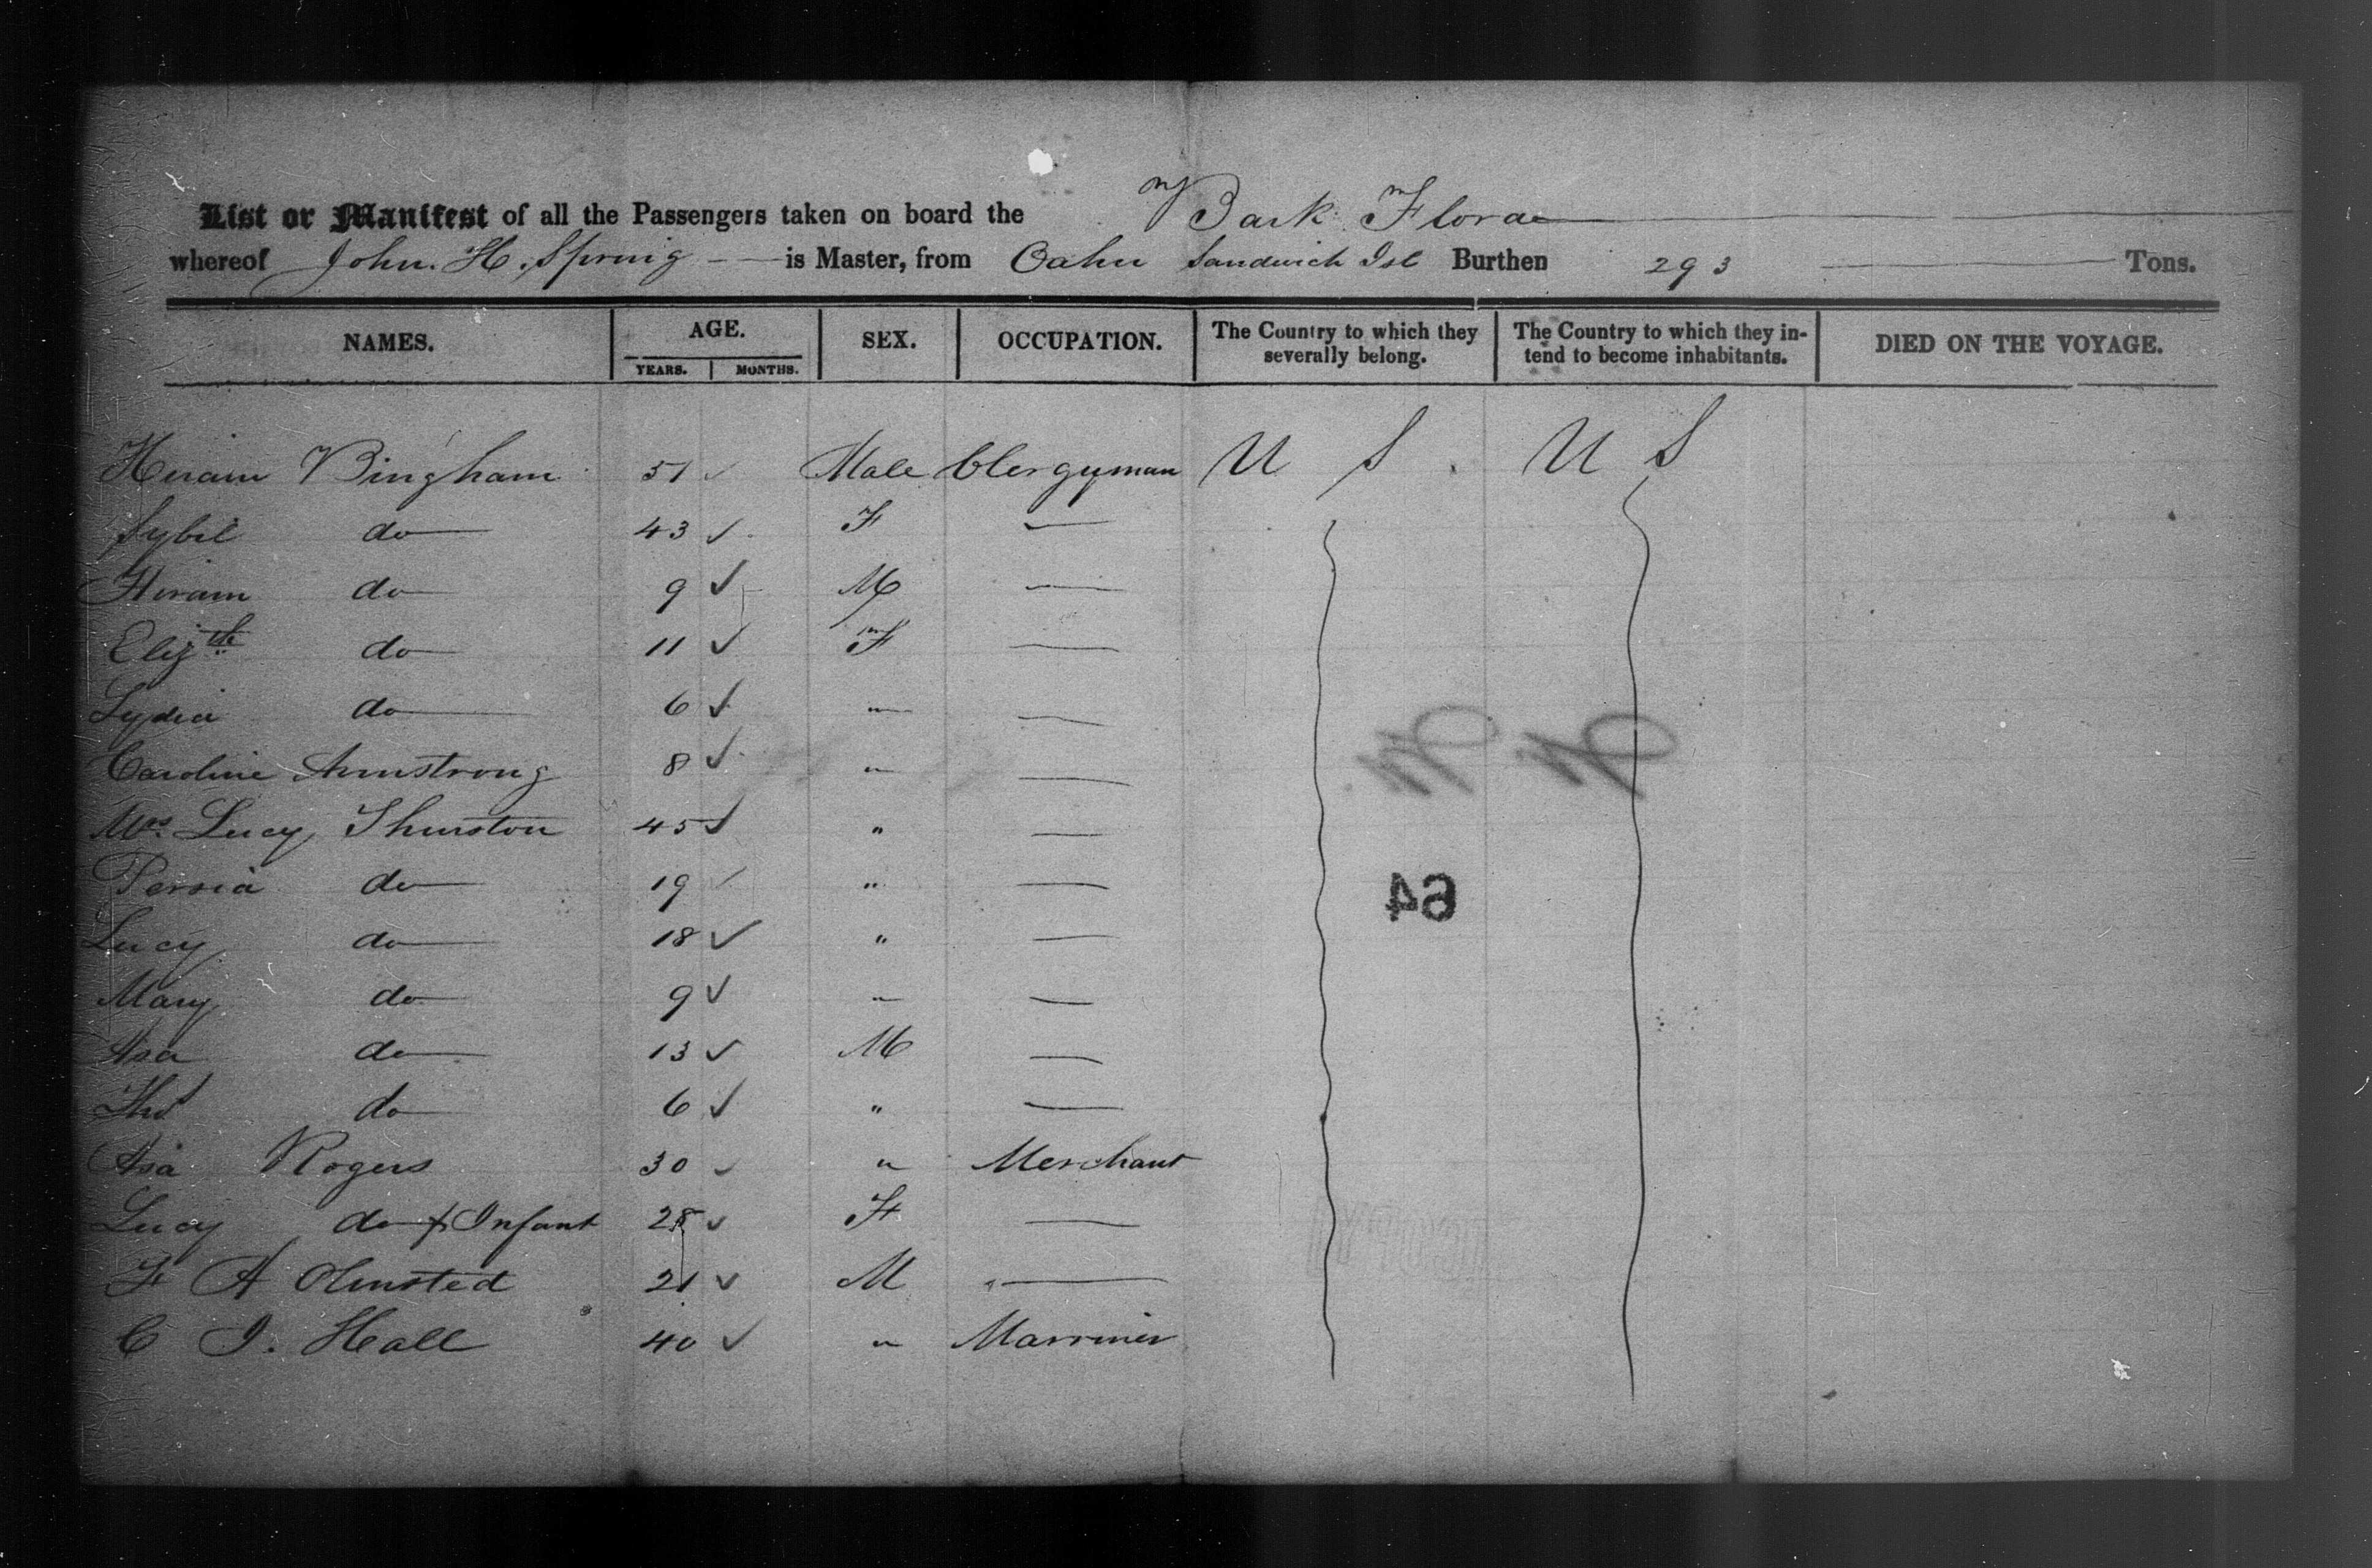 List or Manifest of all the Passengers taken on board the Bark Flora
whereof John. H. Spring is Master, from Oahu Sandwich Isl Burthen 293 Tons.
NAMES. AGE. SEX. OCCUPATION. The Country to which they severally belong. The Country to which they in- tend to become inhabitants. DIED ON THE VOYAGE.
YEARS. MONTHS.
Hiram Bingham 51 Male Clergyman U S. U S
Sybil do 43 F
Hiram do 9 M
Elizth do 11 F
Lydia do 6 "
Caroline Armstrong 8 "
Mrs. Lucy Thurston 45 "
Persia do 19 "
Lucy do 18 "
Mary do 9 "
Asa do 13 M
Thos do 6 "
Asa Rogers 30 " Merchant
Lucy do & Infant 28 F
F A Olmsted 21 M
C J. Hall 40 " Marriner
64